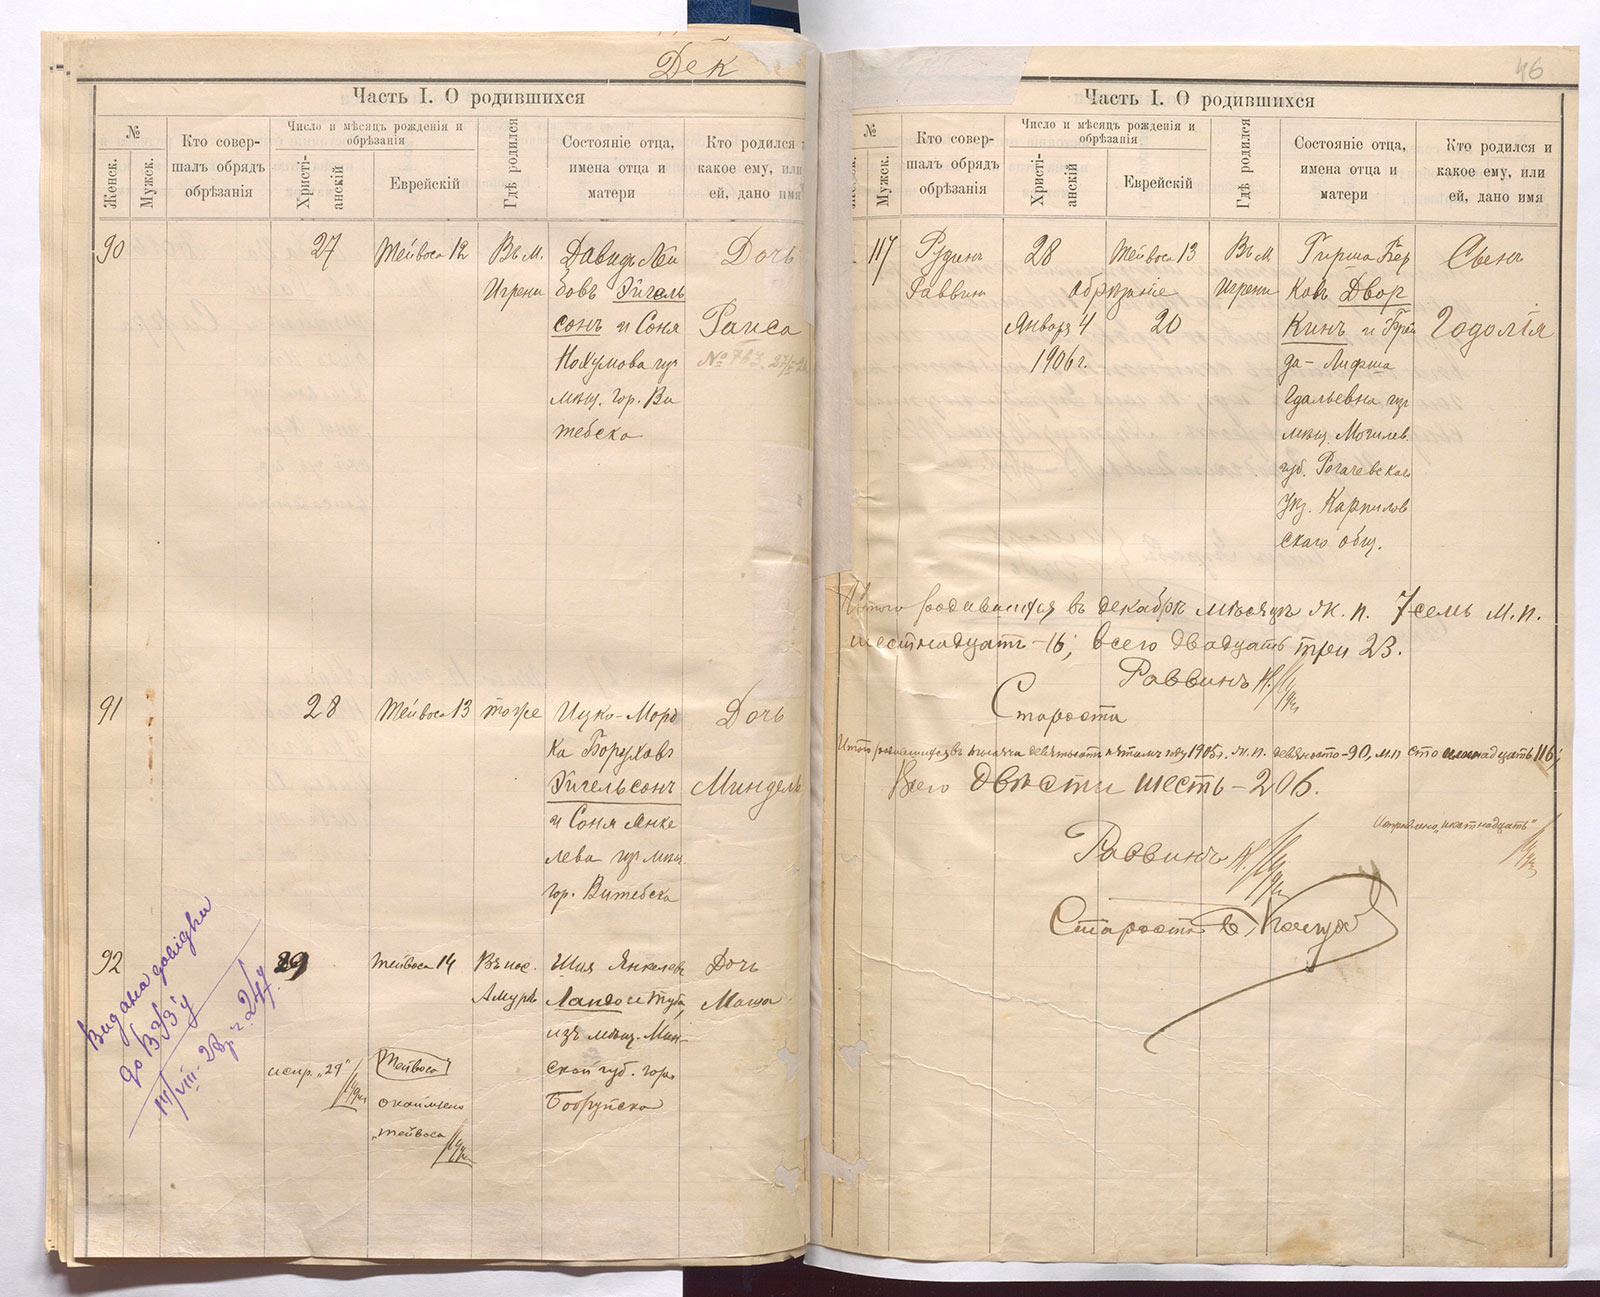 Дек
Часть I. О родившихся
№
Женск.
Мужск.
Кто совер-
шалъ обрядъ
обрѣзанія
Число и мѣсяцъ рожденія и
обрѣзанія
Христі-
анскій
Еврейскій
Гдѣ родился
Состояніе отца,
имена отца и
матери
Кто родился и
какое ему, или
ей, дано имя
90
27
Тейвоса 12
Въ м.
Игрени
Давидъ Лей
бовъ Эйгель
сонъ и Соня
Нохумова из
мѣщ. гор. Ви
тебска
Дочь
Раиса
№ 763.
91
28
Тейвоса 13
тоже
Ицко-Морд
ка Боруховъ
Эйгельсонъ
и Соня Янке
лева из мѣщ.
гор. Витебска
Дочь
Миндель
92
29
Тейвоса 14
Въ пос.
Амурѣ
Шия Янкелев
Ландо и Туба,
изъ мѣщ. Мин-
ской губ. гор.
Бобруйска
Дочь
Маша
испр. „29“
Тейвоса
„тейвоса
Видана довідка
до ВЗ
46
Часть I. О родившихся
№
Мужск.
Кто совер-
шалъ обрядъ
обрѣзанія
Число и мѣсяцъ рожденія и
обрѣзанія
Христі-
анскій
Еврейскій
Гдѣ родился
Состояніе отца,
имена отца и
матери
Кто родился и
какое ему, или
ей, дано имя
117
Рудинъ
Раввин
28
Тейвоса 13
обрѣзаніе
Января 4
20
1906 г.
Въ м.
Игрени
Гирша Бер
ковъ Двор
кинъ и Фрей
да-Лифша
Гдальевна из
мѣщ. Могилев.
губ. Рогачевскаго
уѣз. Карпилов
скаго общ.
Сынъ
Годолія
Итого родившихся въ декабрѣ мѣсяцѣ ж. п. 7 семь м. п.
шестнадцать-16; всего двадцать три 23.
Раввинъ
Староста
Итого родившихся въ тысяча девятьсотъ пятомъ году 1905 г. ж. п. девяносто-90, м.п сто шестнадцать 116;
Всего двѣсти шесть-206.
Исправлено „шестнадцать“
Раввинъ
Староста